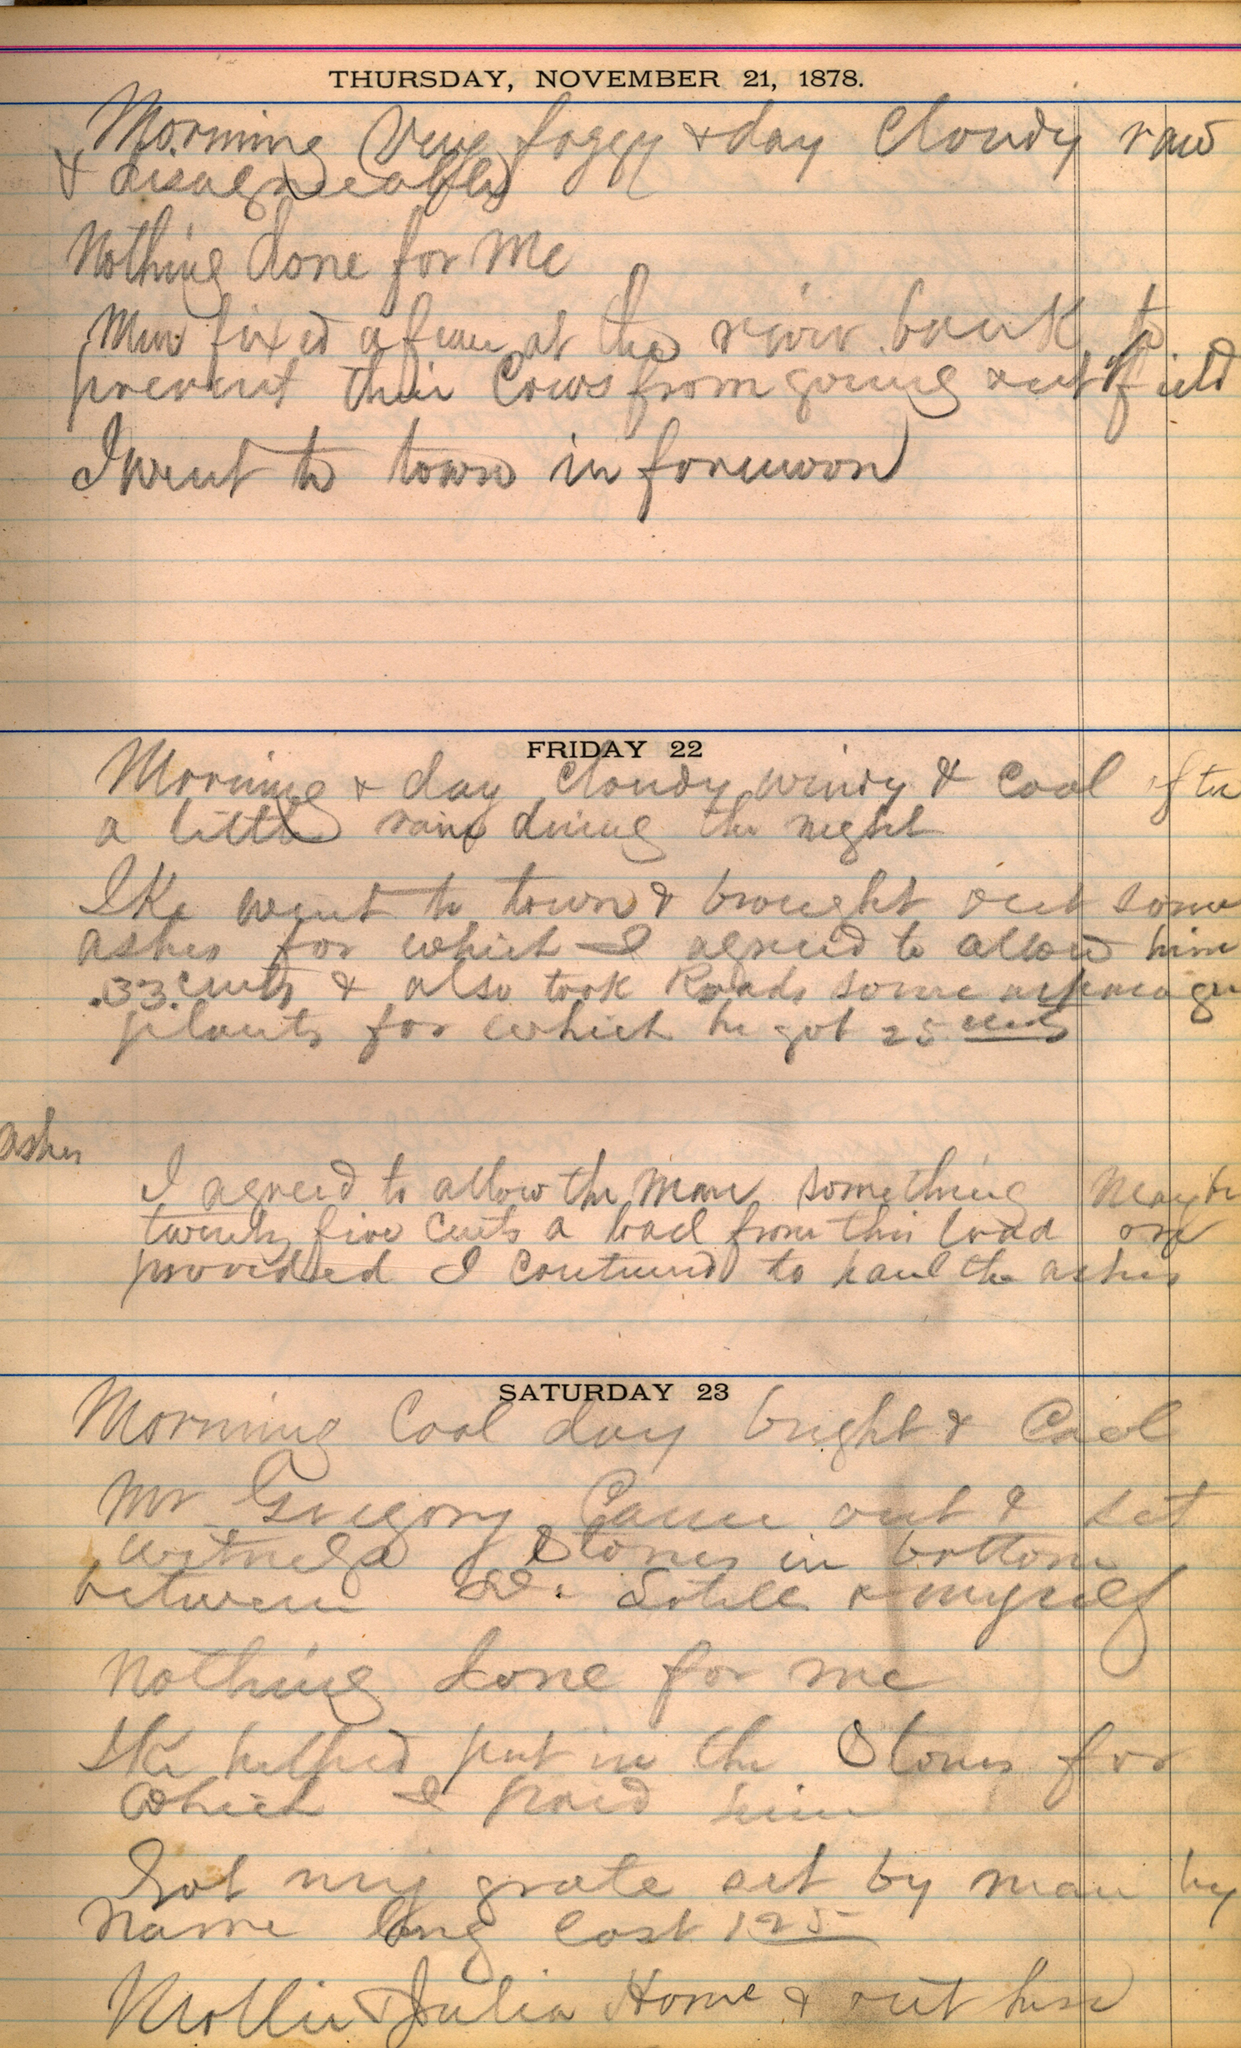 THURSDAY, NOVEMBER 21, 1878.
Morning very foggy & day Cloudy raw
& disagreeable
Nothing done for me
Men fixed a fence at the river bank to
prevent their Cows from going out of field
I went to town in forenoon
FRIDAY 22
Morning & day Cloudy windy & Cool after
a little rain during the night
Ike went to town & brought out some
ashes for which I agreed to allow him
.33 cents & also took Roads some asparagus
plants for which he got 25 cents
Ashes
I agreed to allow the man something Maybe
twenty five Cents a load from this load on
provided I continued to haul the ashes
SATURDAY 23
Morning Cool day bright & Cool
Mr Gregory Came out & set
witness Stones in bottom
between & myself
Nothing done for me
Ike helped put in the Stones for
which I paid him
Got my grate set by man by
Name Long Cost 125
Mollie & Julia Home & out here